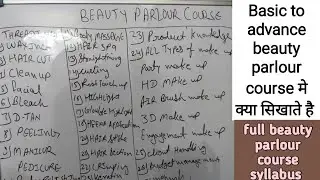 BEAUTY PARLOUR COURSE
THREADING
WAXING
HAIR CUT
Cleanup
Facial
Bleach
D-TAN
PEELING
MANICUR
PEDICURE
BODY MASSAGE
HAIR SPA
Straightening
Curling
Root Touch up
HIGHLIGHT
Global Highlight
HEENA Application
HAIR Style
HAIR Section
CRIMPING
23) Product knowledge
24) ALL TYPES of make up
Party make up
HD MAKE up
AIR Brush make up
3D Make up
Engagement make up
25) Client Handling
26) Budget management
Basic to
advance
beauty
parlour
course मे
क्या सिखाते है
full beauty
parlour
course
syllabus